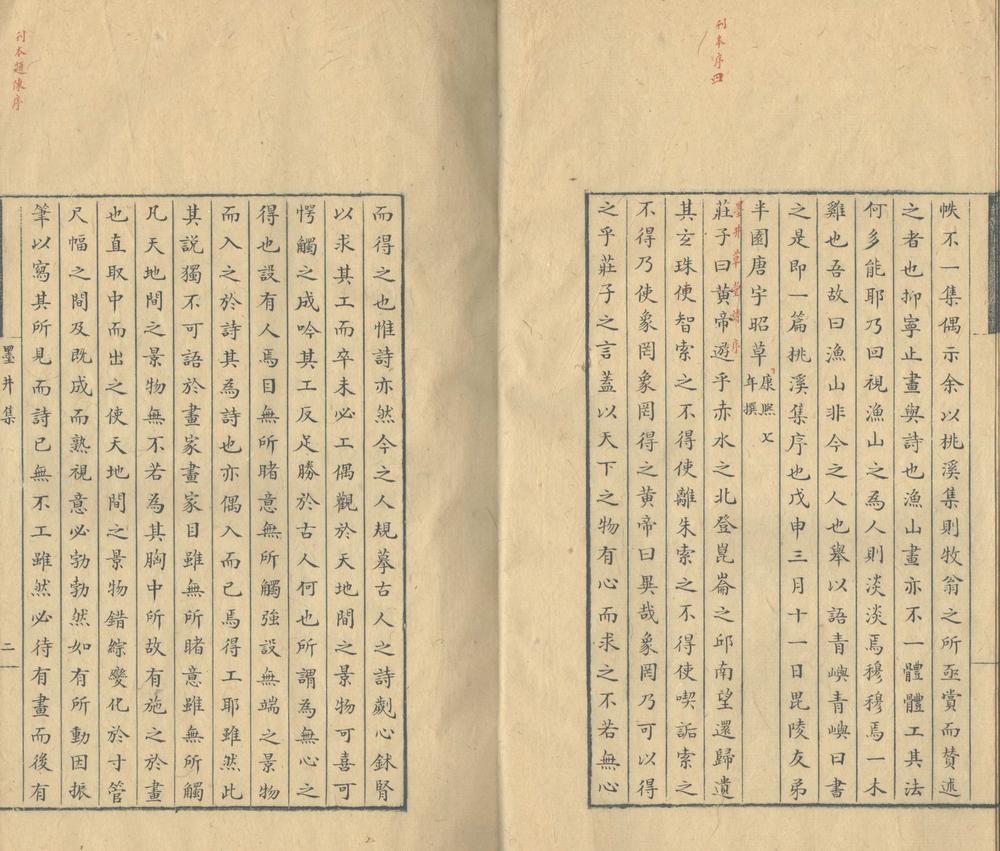 刊本序四
帙不一集偶示余以桃溪集則牧翁之所亟賞而賛述
之者也抑寧止畫與詩也漁山畫亦不一體體工其法
何多能耶乃回視漁山之為人則淡淡焉穆穆焉一木
雞也吾故曰漁山非今之人也舉以語青嶼青嶼曰書
之是即一篇桃溪集序也戊申三月十一日毘陵友弟
半園唐宇昭草
康熙七
年撰
墨井草堂詩序
莊子曰黃帝遊乎赤水之北登崑崙之邱南望還歸遺
其玄珠使智索之不得使離朱索之不得使喫詬索之
不得乃使象罔象罔得之黃帝曰異哉象罔乃可以得
之乎莊子之言蓋以天下之物有心而求之不若無心
刊本題陳序
而得之也惟詩亦然今之人規摹古人之詩劌心鉥腎
以求其工而卒未必工偶觀於天地間之景物可喜可
愕觸之成吟其工反足勝於古人何也所謂為無心之
得也設有人焉目無所睹意無所觸強設無端之景物
而入之於詩其為詩也亦偶入而已焉得工耶雖然此
其說獨不可語於畫家畫家目雖無所睹意雖無所觸
凡天地間之景物無不若為其胸中所故有施之於畫
也直取中而出之使天地間之景物錯綜變化於寸管
尺幅之間及既成而熟視意必勃勃然如有所動因振
筆以寫其所見而詩已無不工雖然必待有畫而後有
墨井集
二